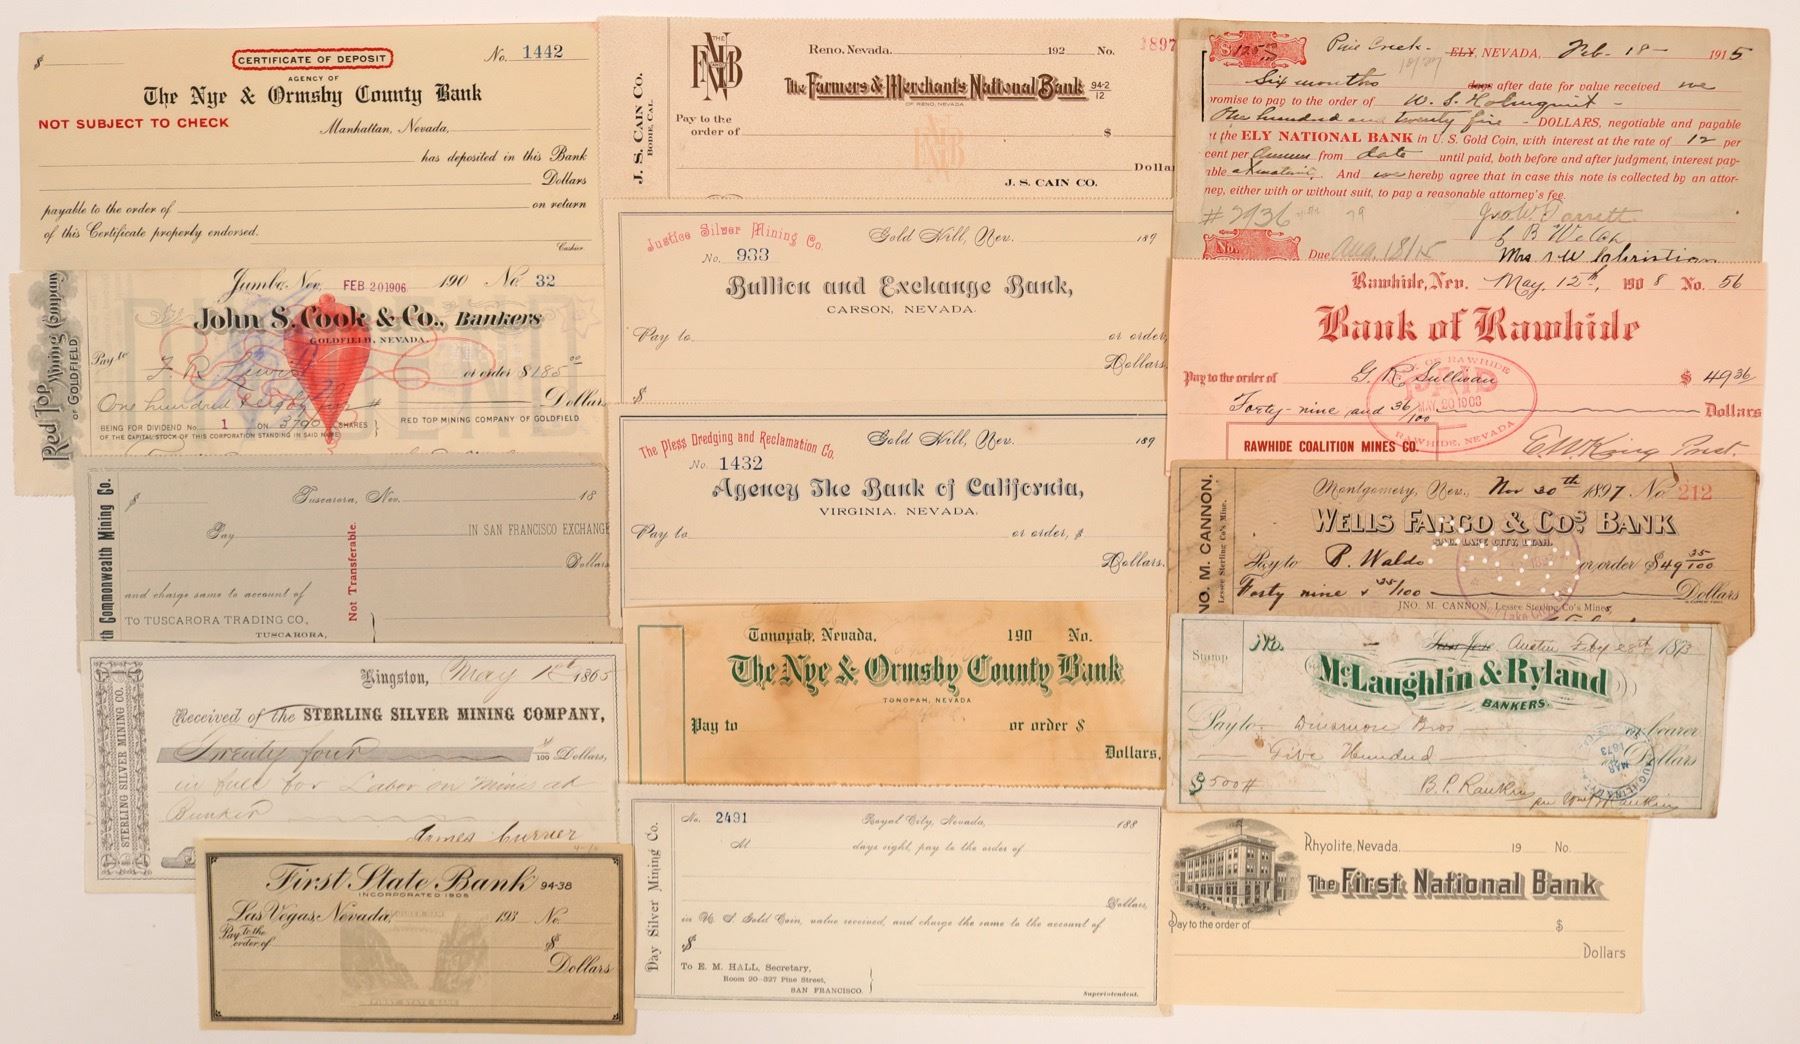 $
CERTIFICATE OF DEPOSIT
No. 1442
AGENCY OF
The Nye & Ormsby County Bank
NOT SUBJECT TO CHECK
Manhattan, Nevada,
has deposited in this Bank
Dollars
payable to the order of
on return
of this Certificate properly endorsed.
Cashier.
Red Top Mining Company
OF GOLDFIELD
Jumbo, Nev. FEB 20 1906 190 No. 32
John S. Cook & Co., Bankers
GOLDFIELD, NEVADA.
Pay to
or order $185.00
One hundred
Dollars
BEING FOR DIVIDEND No. 1 ON 3790 SHARES
OF THE CAPITAL STOCK OF THIS CORPORATION STANDING IN SAID NAME
RED TOP MINING COMPANY OF GOLDFIELD
th Commonwealth Mining Co.
$ Tuscarora, Nev. 18
Pay
IN SAN FRANCISCO EXCHANGE
Dollars
and charge same to account of
Not Transferable.
TO TUSCARORA TRADING CO.,
TUSCARORA,
STERLING SILVER MINING CO.
Kingston, May 1st 1865
Received of the STERLING SILVER MINING COMPANY,
Twenty four /100 Dollars,
in full for Labor on Mines at
Bunker
James Currier
First State Bank 94-38
INCORPORATED 1905
Las Vegas, Nevada, 193 No.
Pay to the
order of
$
Dollars
FNB
THE
AND
Reno, Nevada. 192 No. 1897
The Farmers & Merchants National Bank 94-2
12
OF RENO, NEVADA
J. S. CAIN CO.
BODIE, CAL.
Pay to the
order of
$
FNB
Dolla
J. S. CAIN CO.
Justice Silver Mining Co.
No. 933
Gold Hill, Nev. 189
Bullion and Exchange Bank,
CARSON, NEVADA.
Pay to
or order,
Dollars.
$
The Pless Dredging and Reclamation Co.
No. 1432
Gold Hill, Nev. 189
Agency The Bank of California,
VIRGINIA, NEVADA.
Pay to
or order, $
Dollars.
Tonopah, Nevada, 190 No.
The Nye & Ormsby County Bank
TONOPAH, NEVADA
Pay to
or order $
Dollars,
Day Silver Mining Co.
No. 2491
Royal City, Nevada, 188
At days sight, pay to the order of
Dollars,
in U. S. Gold Coin, value received, and charge the same to the account of
$
To E. M. HALL, Secretary,
Room 20-327 Pine Street,
SAN FRANCISCO.
Superintendent.
$125.00 Pine Creek - ELY, NEVADA, Feb - 18 - 1915
Six months days after date for value received we
promise to pay to the order of W. S. Holmquist -
One hundred and twenty five - DOLLARS, negotiable and payable
at the ELY NATIONAL BANK in U. S. Gold Coin, with interest at the rate of 12 per
cent per Annum from date until paid, both before and after judgment, interest pay-
able. And we hereby agree that in case this note is collected by an attor-
ney, either with or without suit, to pay a reasonable attorney's fee.
#2936 79
Geo W. Parrett
C B Welch
No.
Due Aug 18/15
Mrs. Christian
Rawhide, Nev. May. 12th, 190 8 No. 56
Bank of Rawhide
Pay to the order of G. R. Sullivan $ 49 36
Forty-nine and 36/100 Dollars
BANK OF RAWHIDE
PAID
MAY 20 1908
RAWHIDE, NEVADA
RAWHIDE COALITION MINES CO.
E. W. King Prest.
JNO. M. CANNON.
Lessee Sterling Co's Mine.
Montgomery, Nev., Nov 30th 1897 No. 212
WELLS FARGO & CO'S BANK
SALT LAKE CITY, UTAH.
Pay to P. Waldo or order $49 35/100
Forty nine & 35/100 Dollars
JNO. M. CANNON, Lessee Sterling Co's Mine,
Stamp
No. San Jose Austin Feby 28th 1873
McLaughlin & Ryland
BANKERS.
Pay to Dinsmore Bros or bearer
Five Hundred Dollars
$500#
B. P. Rankin
MAR
1873
Rhyolite, Nevada. 19 No.
The First National Bank
Pay to the order of
$
Dollars